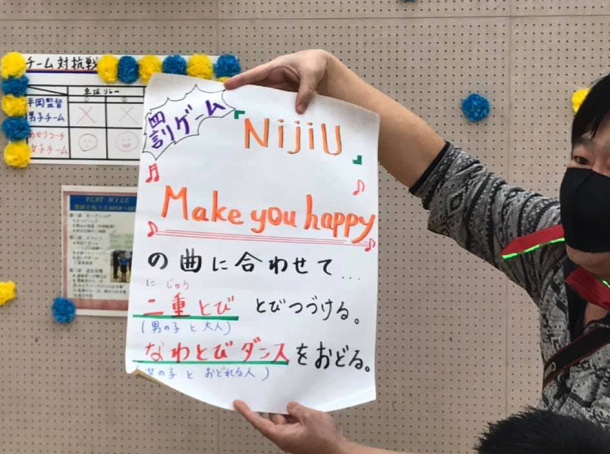 チーム対抗戦
平岡監督
男子チーム
女子チーム
罰ゲーム
「NijiU」
Make you happy
の曲に合わせて...
にじゅう
二重とび とびつづける。
(男の子と大人)
なわとびダンスをおどる。
女の子とおどれる人)